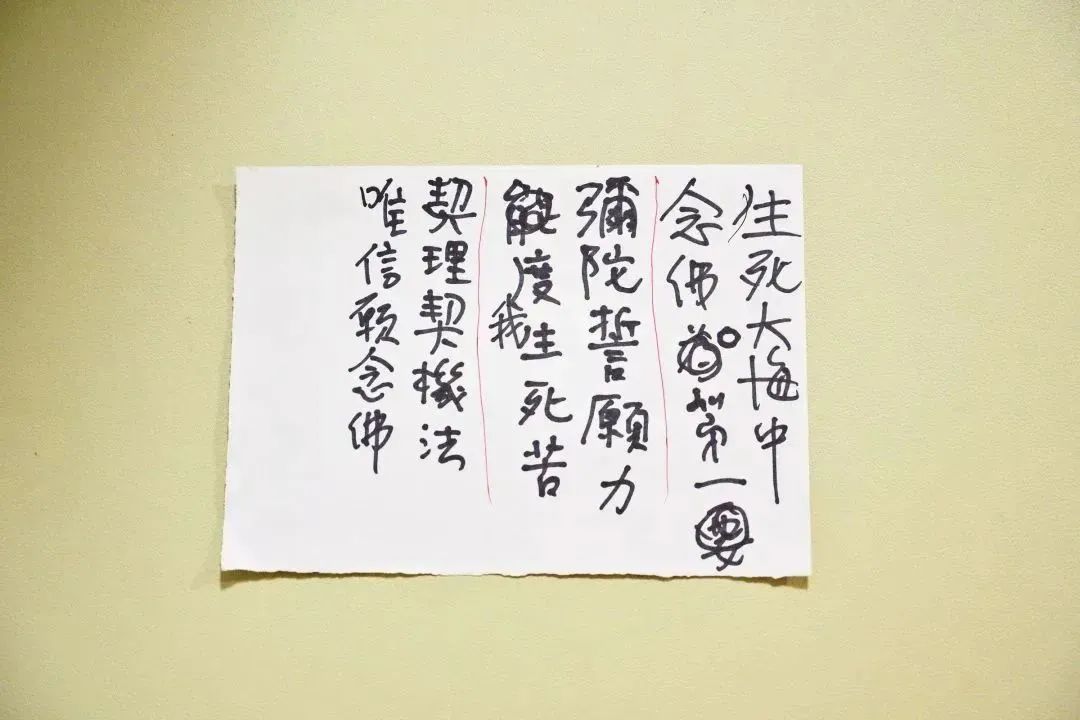 生死大海中
念佛為第一
彌陀誓願力
能度我生死苦
契理契機法
唯信願念佛